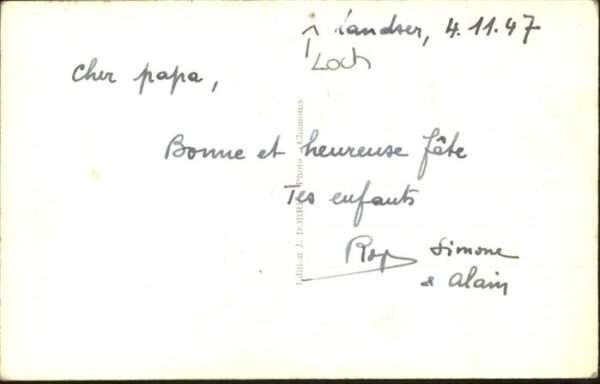 Landser, 4.11.47
Loch
Cher papa,
Bonne et heureuse fête
Tes enfants
Simone
& Alain
Photo - Chamonix